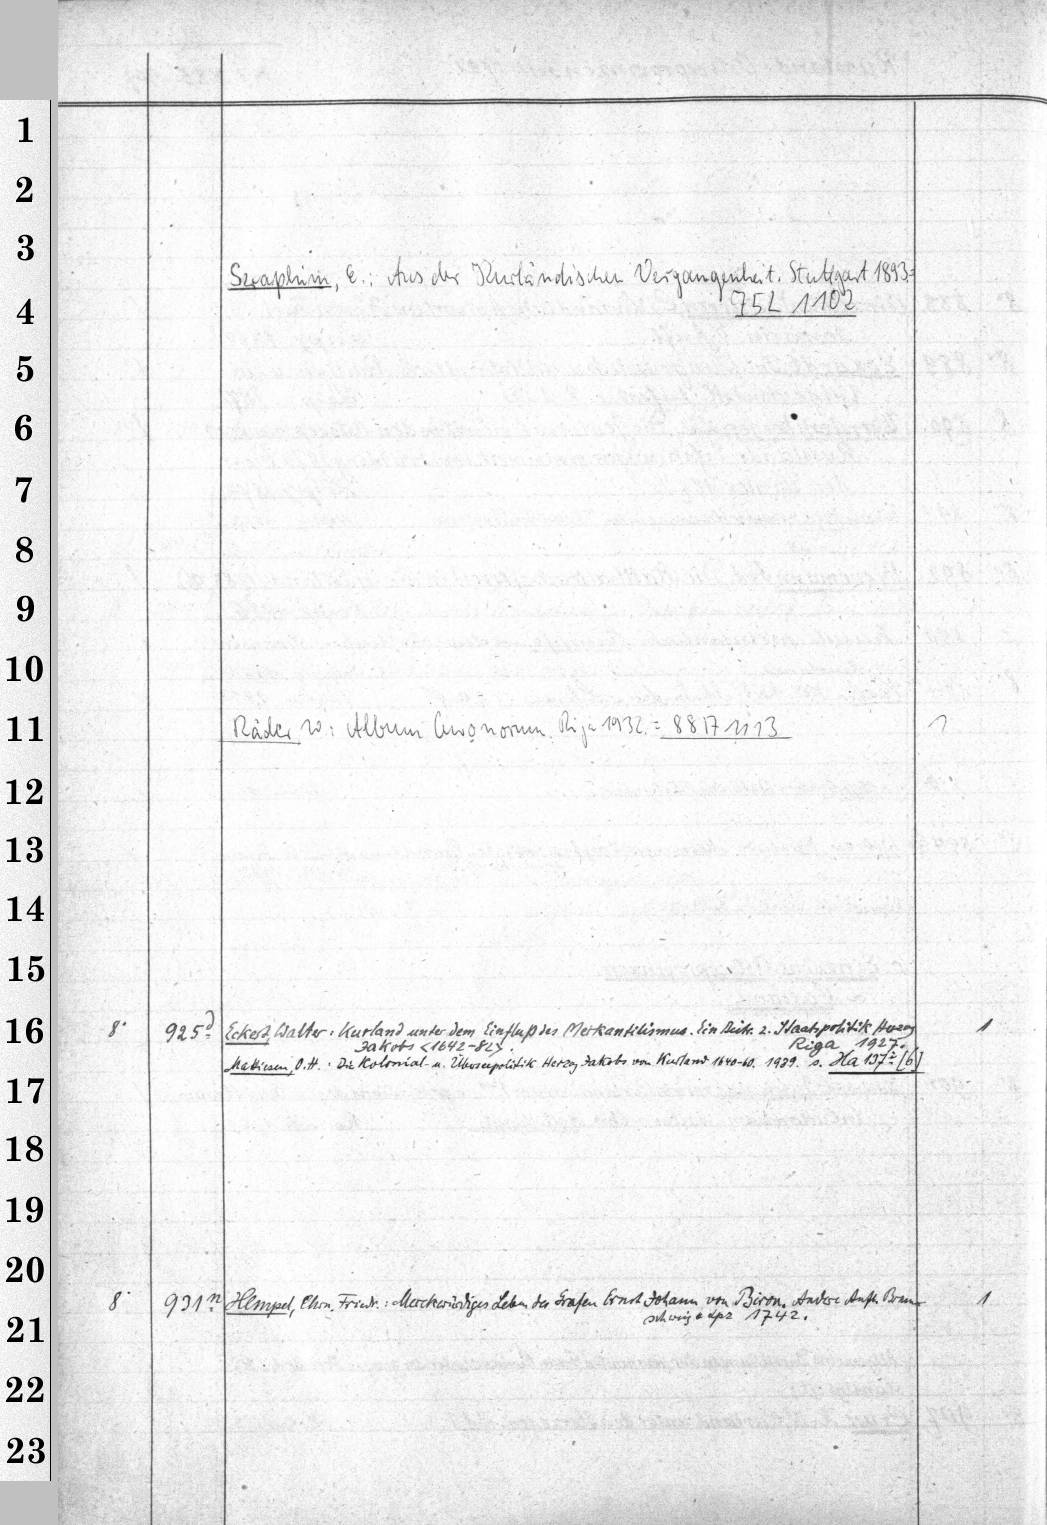 1
2
3
Seraphim, E.: Aus der Kurländischen Vergangenheit. Stuttgart 1893=
4
75L 1102
5
6
7
8
9
10
11 Räder W: Album Curonorum. Riga 1932. = 88 17 1113 1
12
13
14
15
16 8° 925d Eckert, Walter: Kurland unter dem Einfluß des Merkantilismus. Ein Beitr. z. Staatspolitik Herzog 1
Jakobs <1642-82>. Riga 1927.
Mattiesen, O.H.: Die Kolonial- u. Überseepolitik Herzog Jakobs von Kurland 1640-60. 1939. s. Ha 137 [6]
17
18
19
20
8° 931n Hempel, Chrn. Friedr.: Merckwürdiges Leben des Grafen Ernst Johann von Biron. Andere Aufl. Braun- 1
schweig & Lpz 1742.
21
22
23